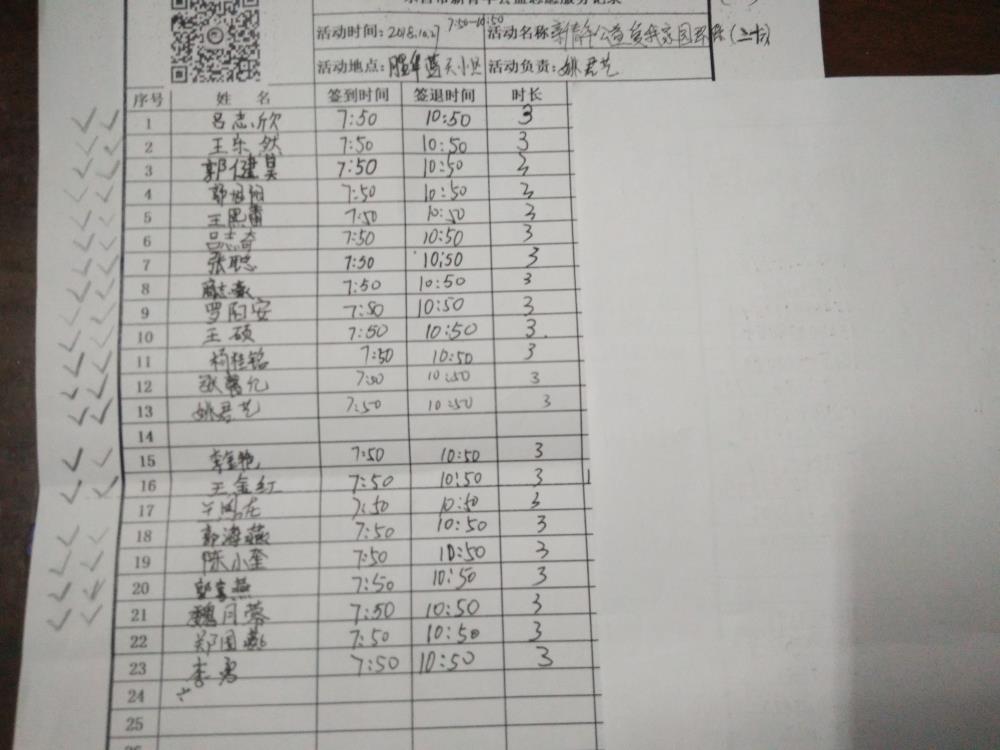 活动时间:2018.10.27 7:50-10:50 活动名称
活动地点: 活动负责:姚君艺
序号 姓 名 签到时间 签退时间 时长
1 吕志欣 7:50 10:50 3
2 王乐然 7:50 10:50 3
3 郭健昊 7:50 10:50 3
4 7:50 10:50 3
5 王思蕾 7:50 10:50 3
6 吕志奇 7:50 10:50 3
7 张聪 7:50 10:50 3
8 7:50 10:50 3
9 罗阳安 7:50 10:50 3
10 王硕 7:50 10:50 3
11 杨桂铭 7:50 10:50 3
12 7:50 10:50 3
13 姚君艺 7:50 10:50 3
14
15 7:50 10:50 3
16 王金红 7:50 10:50 3
17 7:50 10:50 3
18 郭海燕 7:50 10:50 3
19 陈小奎 7:50 10:50 3
20 7:50 10:50 3
21 魏月蓉 7:50 10:50 3
22 郑国燕 7:50 10:50 3
23 李勇 7:50 10:50 3
24
25